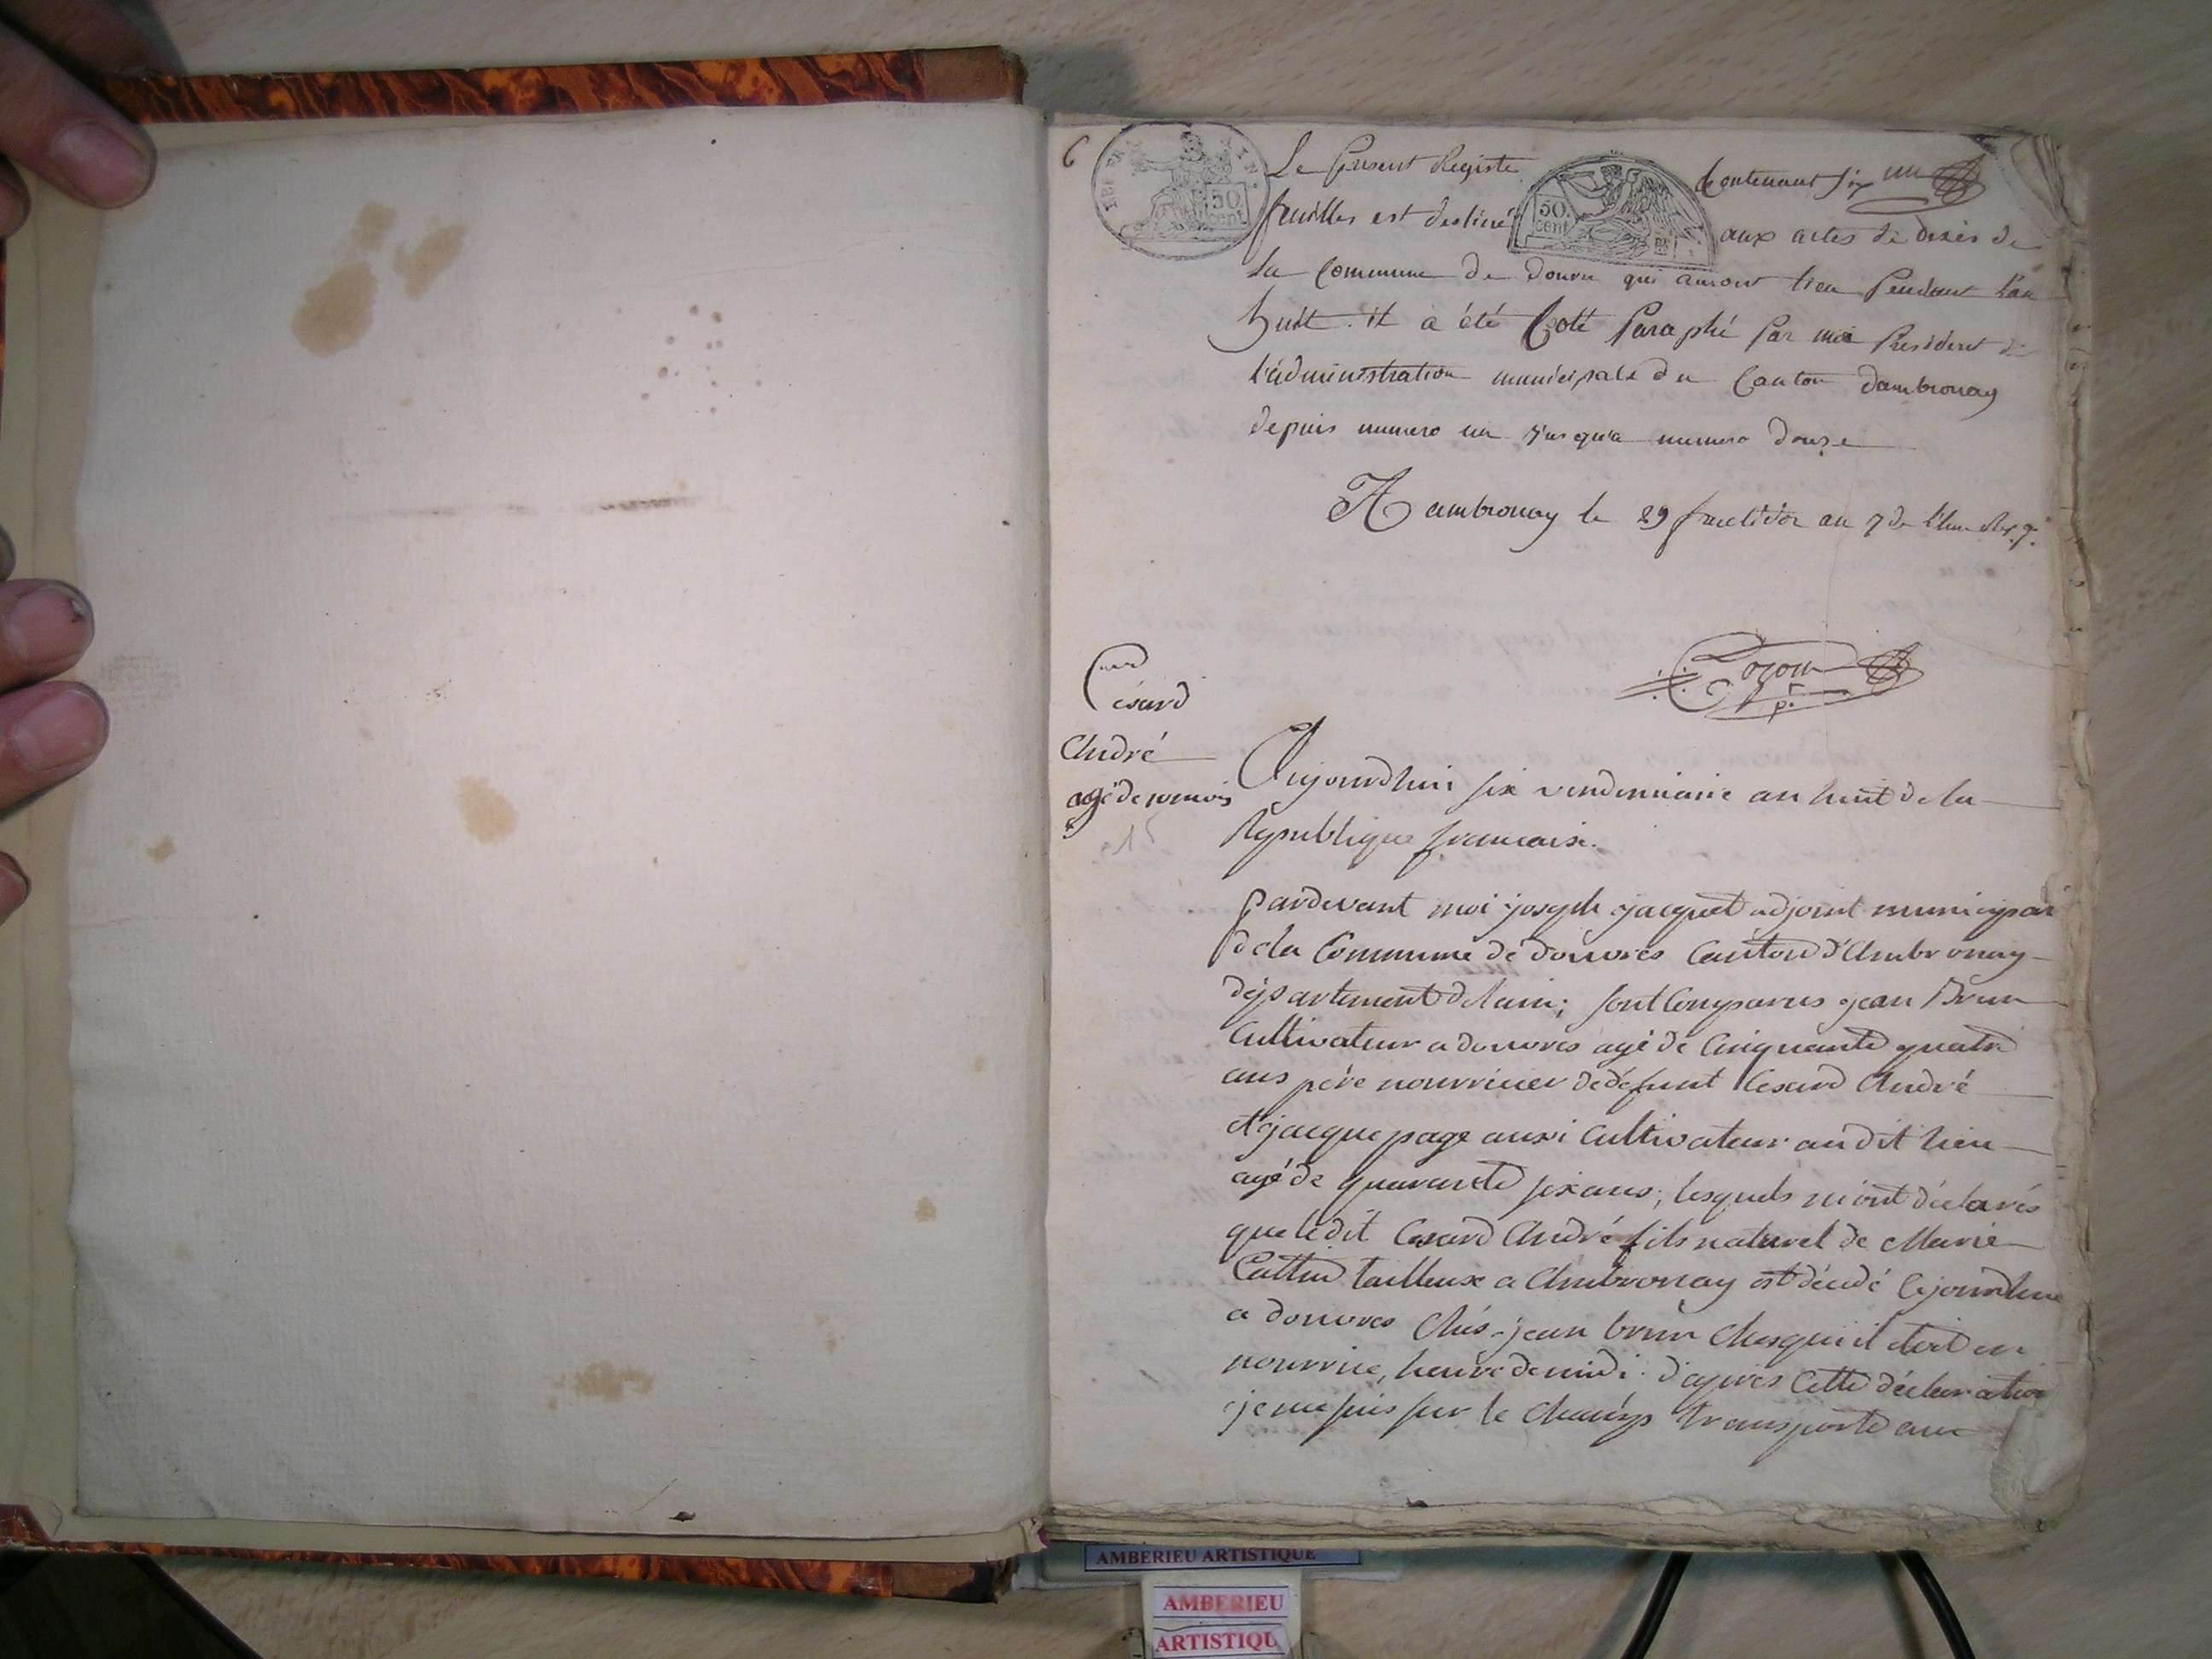 6
50 cent
Le present Registre contenant six
50 cent
feuilles est destiné aux actes de décès de
la commune de douvre qui auront lieu pendant l'an
huit. il a été coté paraphé par moi président de
l'administration municipale du canton dambronay
depuis numero un jusqu'a numero douze
A ambronay le 29 fructidor an 7 de l'ère
Césard
André
agé de 10 mois
Aujourdhui six vendemiaire an huit de la
Republique francaise.
pardevant moi joseph jacquet adjoint municipal
de la Commune de douvres Canton d'Ambronay
département de lain; sont Comparus jean Brun
Cultivateur a douvres agé de Cinquante quatre
ans père nourricier de défunt Cesard André
et jacque page aussi Cultivateur audit lieu
agé de quarante six ans; lesquels m'ont déclarés
que ledit Cesard André fils naturel de Marie
Cattin tailleuse a Ambronay est décédé cejourdhui
a douvres chés jean brun chés qui il étoit en
nourrice, heure de midi. d'après Cette déclaration
je me suis sur le champs transporté au
AMBERIEU ARTISTIQUE
AMBERIEU
ARTISTIQU